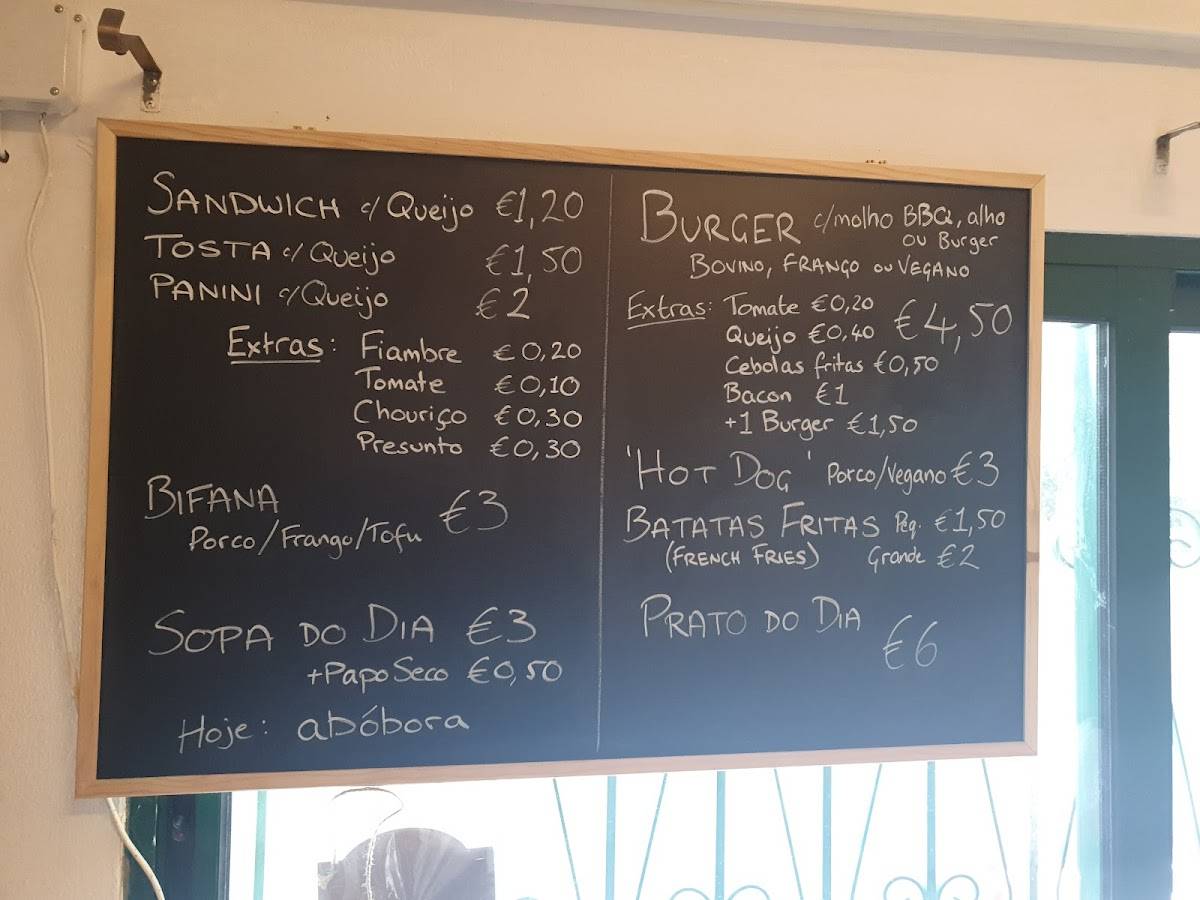 SANDWICH c/ Queijo €1,20
TOSTA c/ Queijo €1,50
PANINI c/ Queijo €2
Extras: Fiambre €0,20
Tomate €0,10
Chouriço €0,30
Presunto €0,30
BIFANA €3
Porco/Frango/Tofu
SOPA DO DIA €3
+Papo Seco €0,50
Hoje: abóbora
BURGER c/molho BBQ, alho
ou Burger
BOVINO, FRANGO OU VEGANO
Extras: Tomate €0,20 €4,50
Queijo €0,40
Cebolas fritas €0,50
Bacon €1
+1 Burger €1,50
'HOT DOG' Porco/Vegano €3
BATATAS FRITAS Peq. €1,50
(FRENCH FRIES) Grande €2
PRATO DO DIA
€6